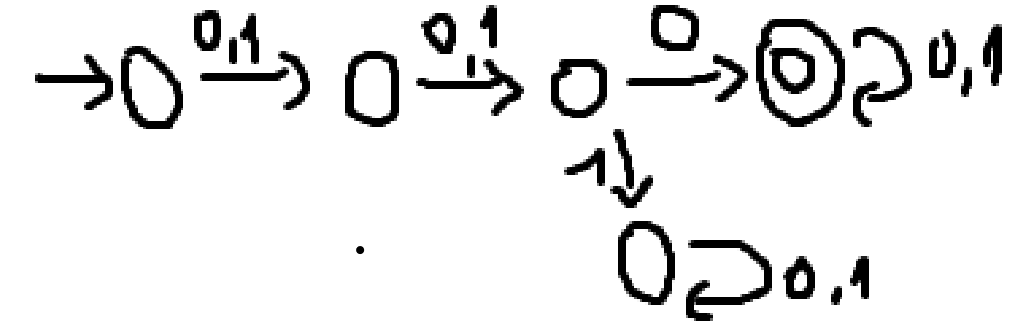 0,1 0,1 0 0,1
1
0,1